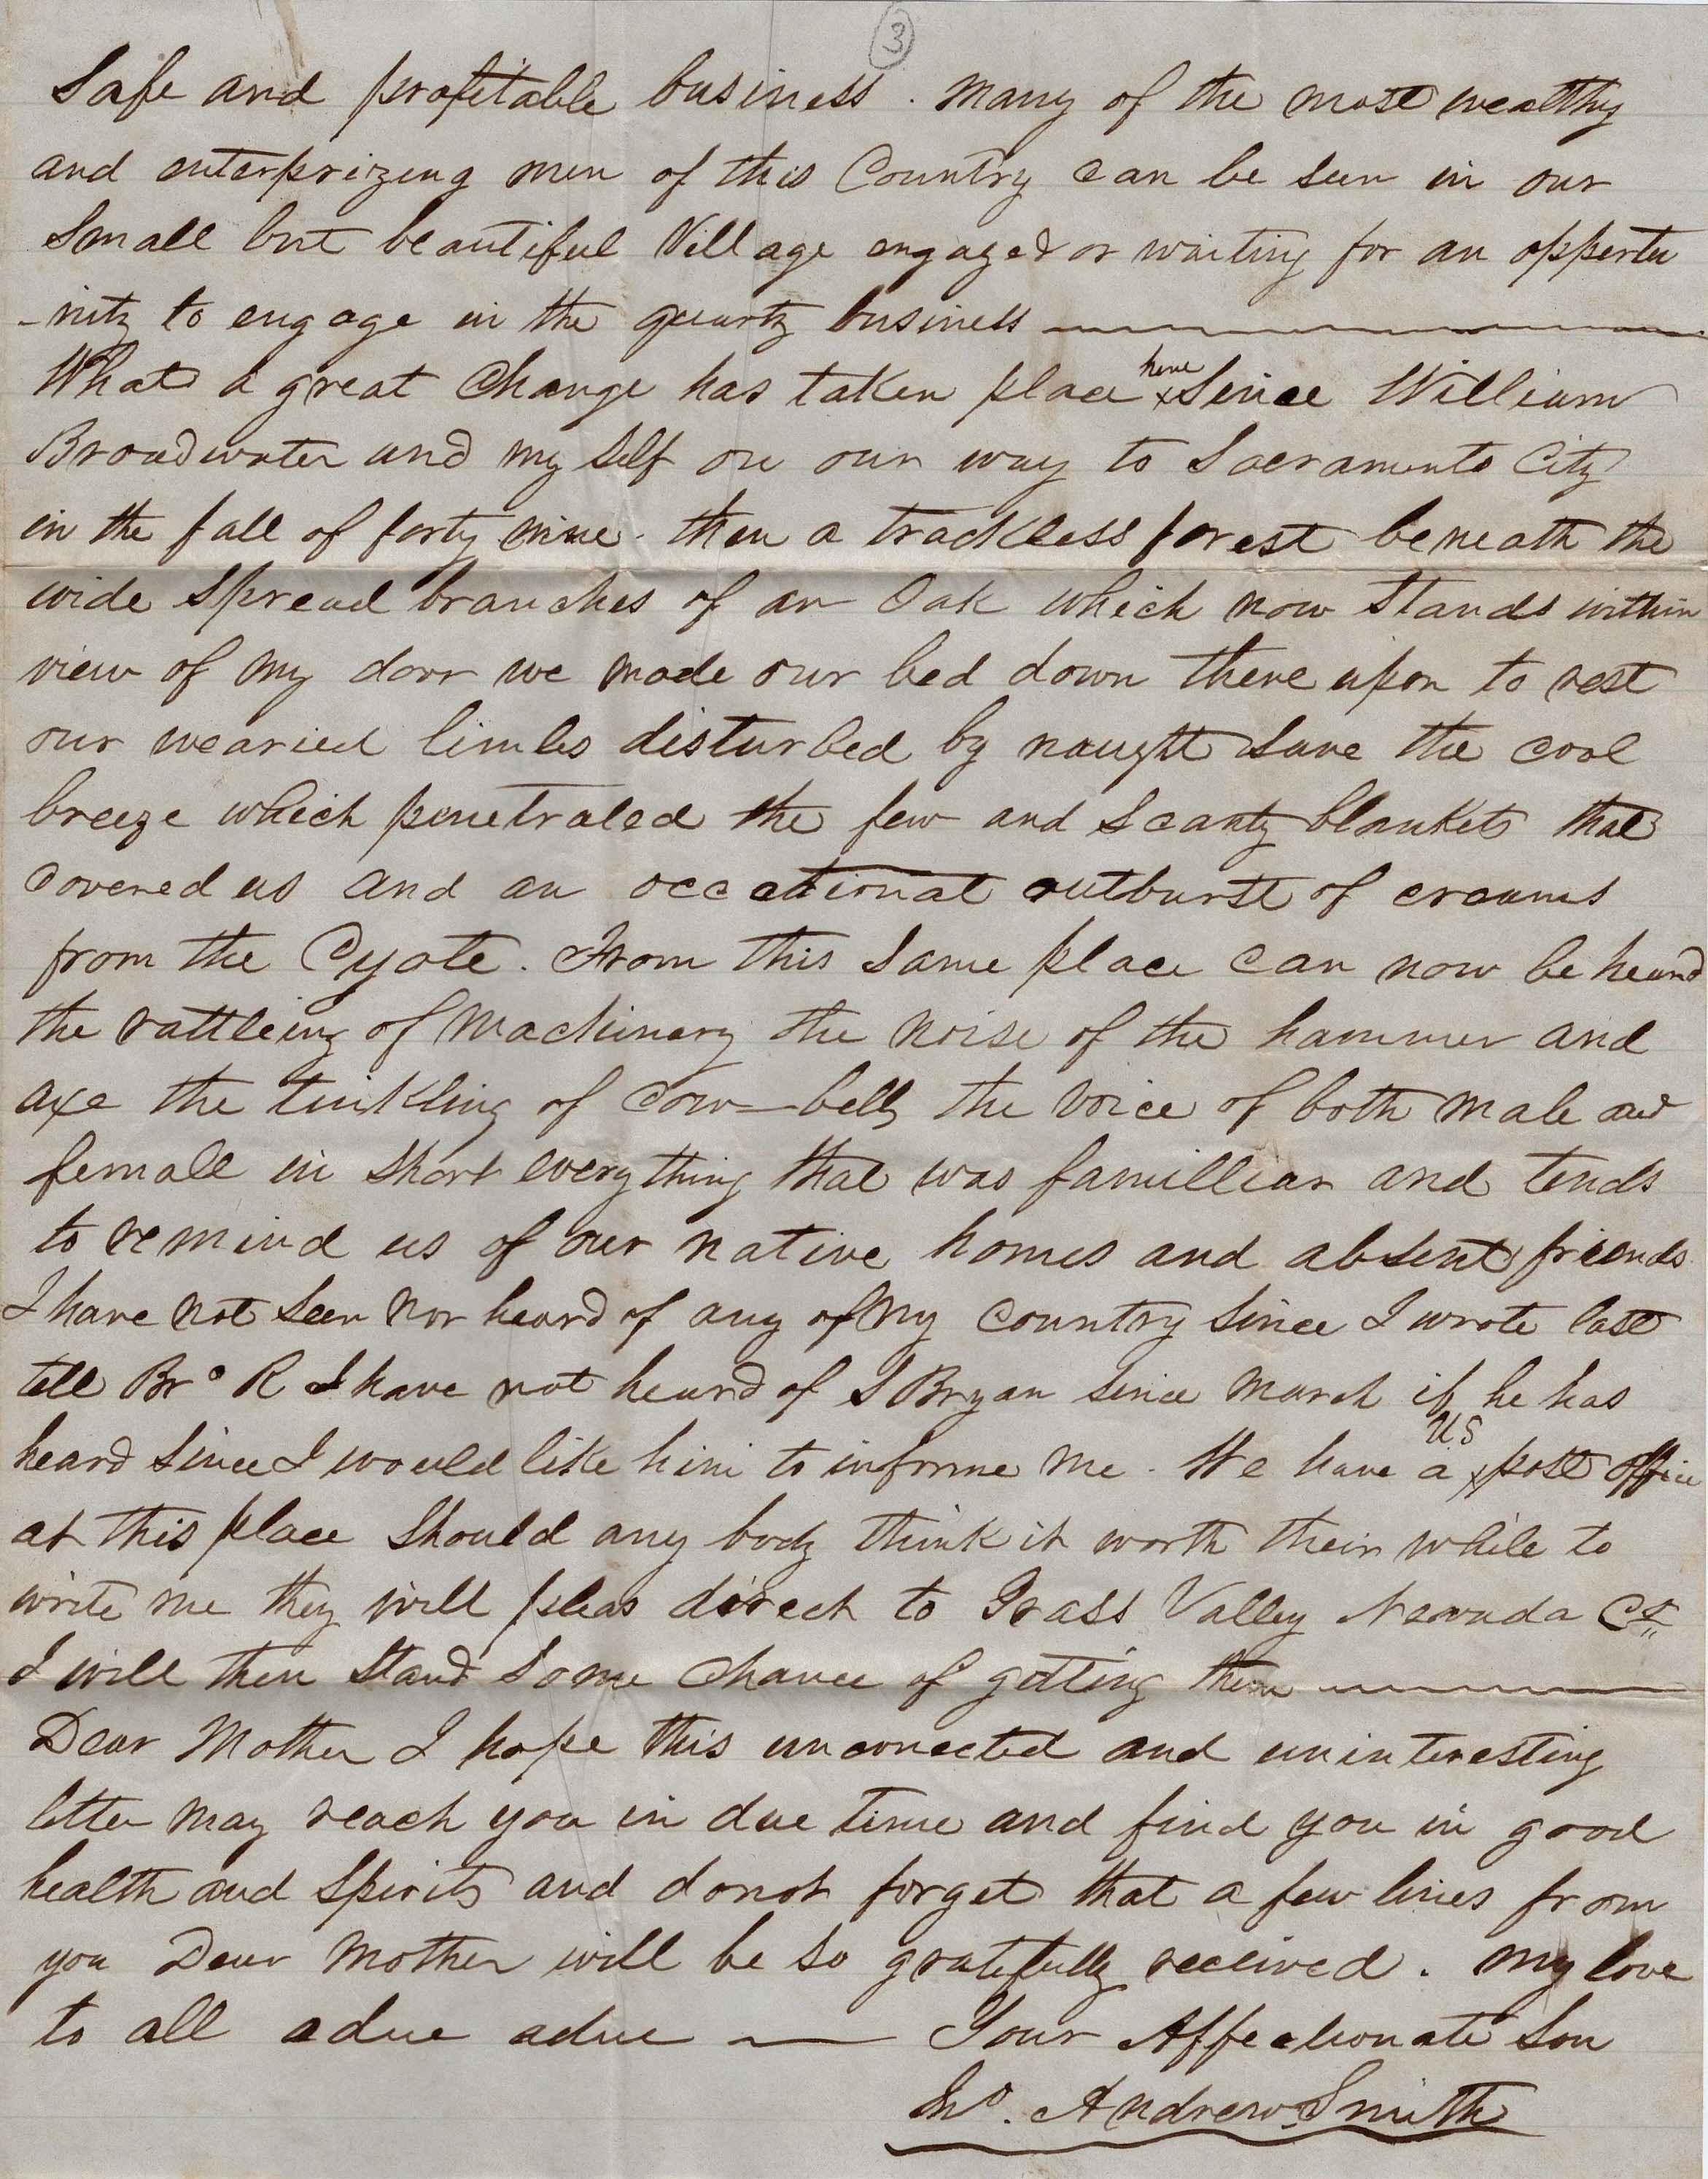 3
Safe and profitable business. Many of the most wealthy
and enterprizing men of this Country can be seen in our
Small but beautiful Village engaged or waiting for an oppertu
-nity to engage in the quartz business
What a great Change has taken place here x Since William
Broadwater and my self on our way to Sacramento City
in the fall of forty nine. then a trackless forest beneath the
wide spread branches of an Oak which now Stands within
view of my door we made our bed down there upon to rest
our wearied limbs disturbed by naught Save the cool
breeze which penetrated the few and Scanty blankets that
Covered us and an occational outburst of
from the Cyote. From this Same place can now be heard
the rattleing of Machinery the noise of the hammer and
axe the tinkling of Cow-bells the Voice of both male and
female in Short everything that was familliar and tends
to remind us of our native homes and absent friends
I have not Seen nor heard of any of my country Since I wrote last
tell Bro R I have not heard of S Bryan Since March if he has
heard Since I would like him to informe me. We have a x US post office
at this place Should any body think it worth their while to
write me they will pleas direct to Grass Valley Nevada Co.
I will then Stand Some Chance of getting them
Dear Mother I hope this unconnected and uninteresting
letter may reach you in due time and find you in good
health and Spirits and donot forget that a few lines from
you Dear Mother will be so gratefully received. My love
to all adue adue — Your Affectionate Son
Jno. Andrew Smith